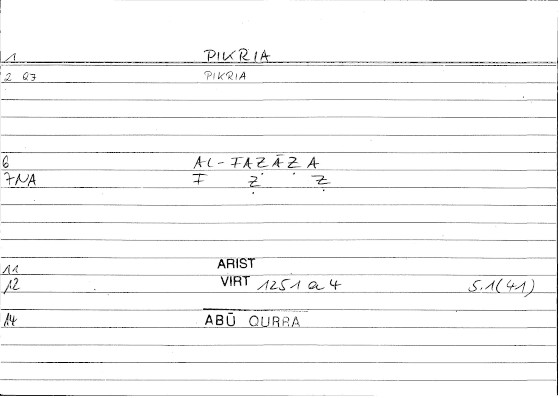 1 PIKRIA
2 PIKRIA
6 AL-FAẒĀẒA
7 NA F Ẓ Ẓ
11 ARIST
12 VIRT 1251 a 4 5.1(41)
14 ABŪ QURRA